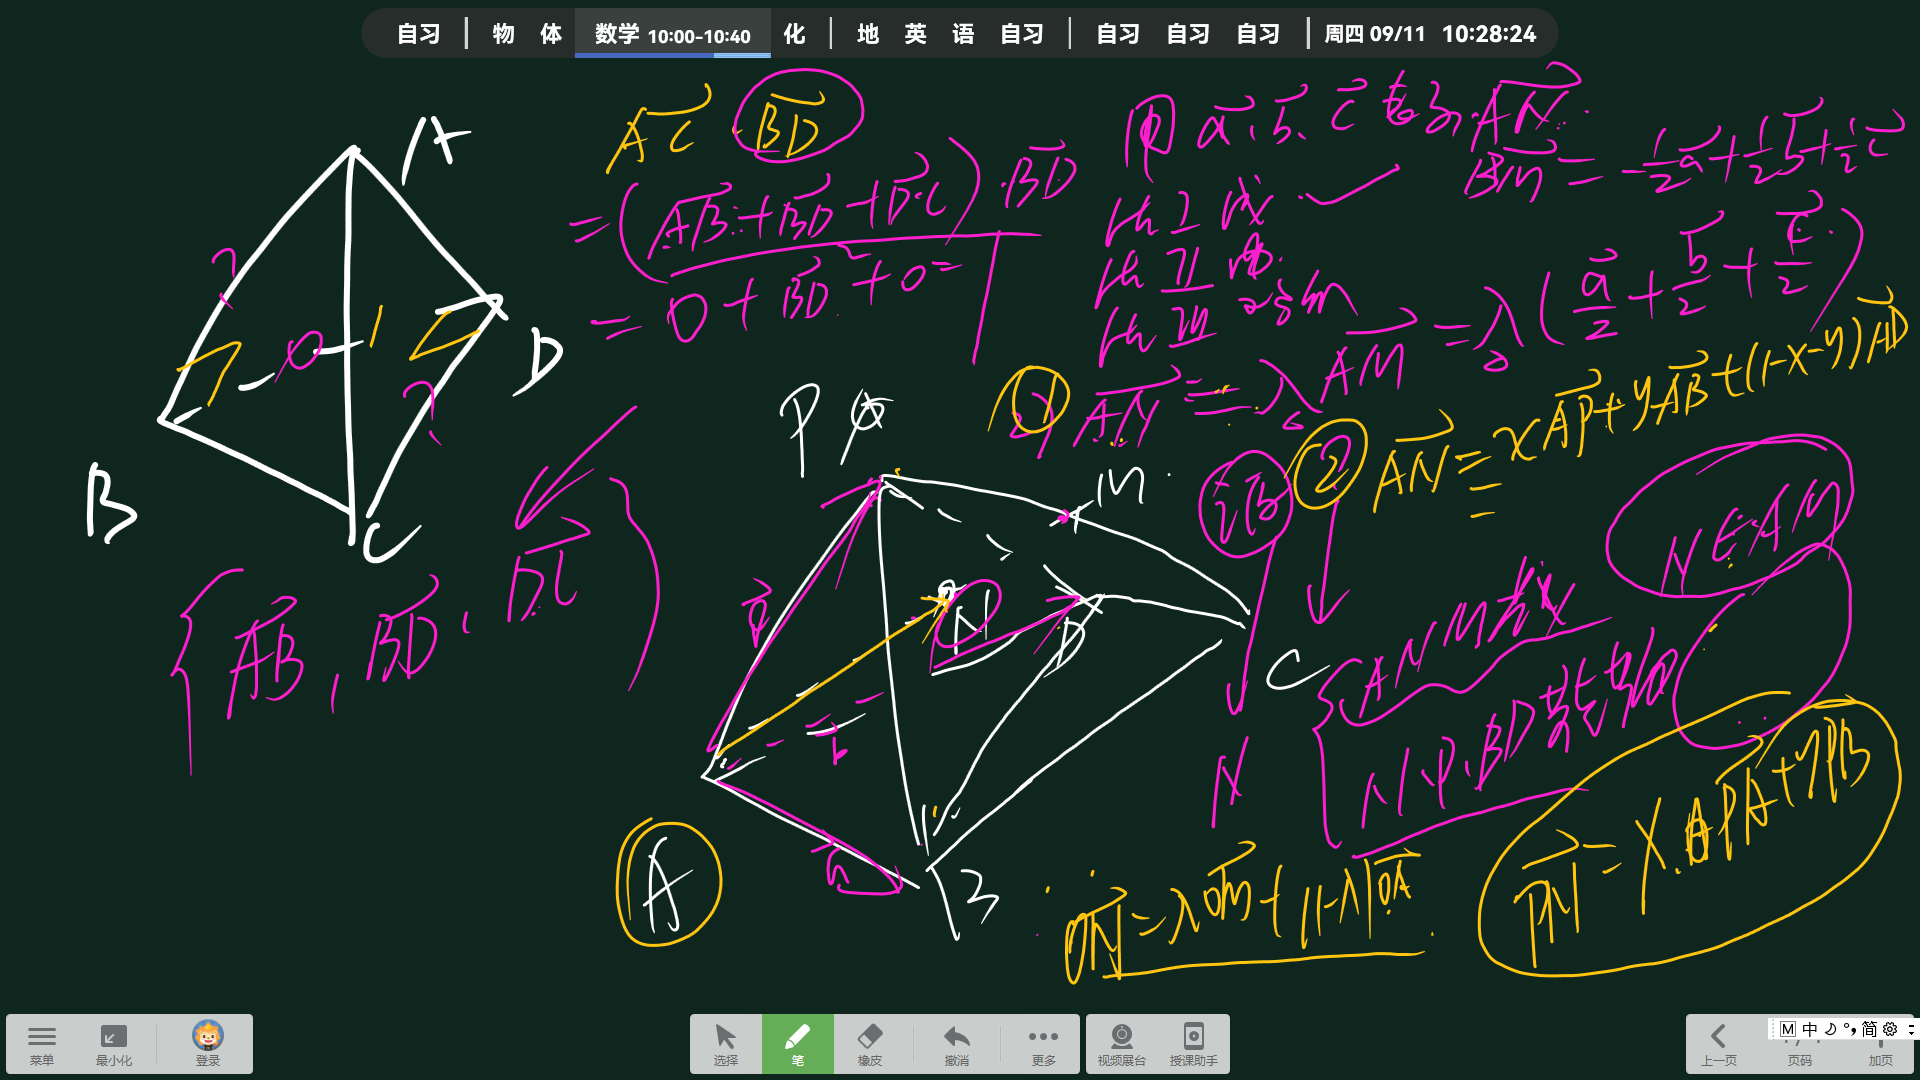 自习 | 物 体 数学 10:00-10:40 化 | 地 英 语 自习 | 自习 自习 自习 | 周四 09/11 10:28:24
A
B
C
D
AC · BD
=(AB+BD+DC)·BD
=0+BD²+0=
AB, BD, DC
用 a、b、c 表示 AN.
BM=-1/2a+1/2b+1/2c
① AN=λAM=λ(a/2+b/2+c/2)
② AN=xAP+yAB+(1-x-y)AD
P
M
N
D
C
A
B
a
b
N∈AM
A N M 共线
N,P,BD 共面
N
ON=λOM+(1-λ)OA
PN=x·PA+yPB
菜单
最小化
登录
选择
笔
橡皮
撤消
更多
视频展台
授课助手
上一页
页码
加页
M 中 简